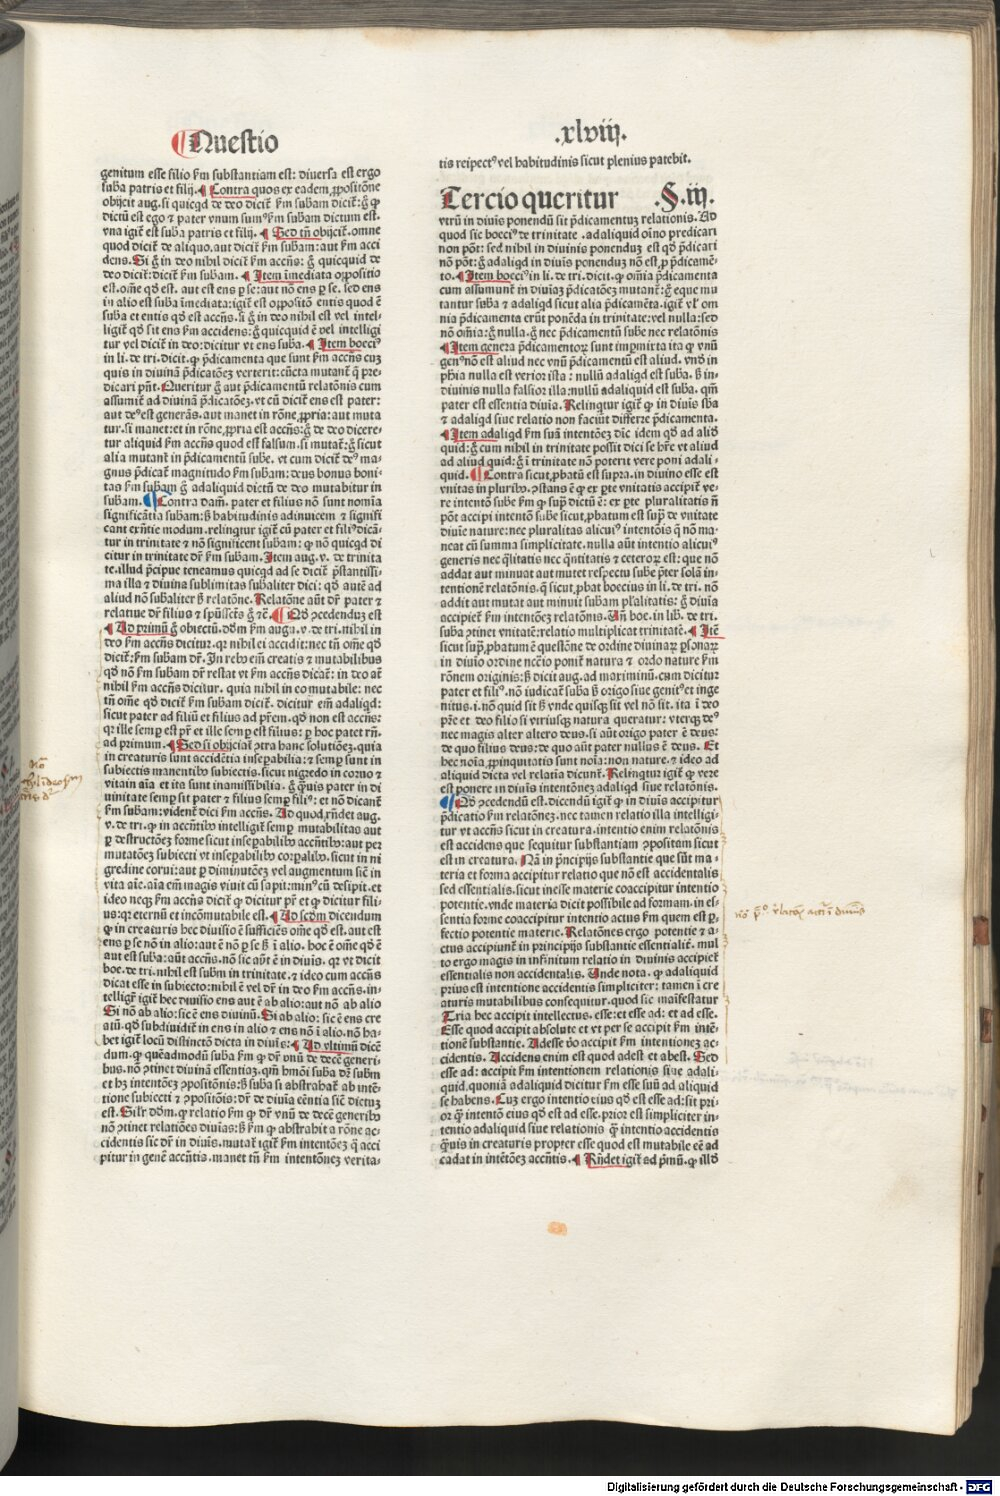 ¶ Questio
.xlviij.
genitum esse filio ẜm substantiam est: diuersa est ergo
suba patris et filij. ¶ Contra quos ex eadem ꝓpositõne
obijcit aug. si quicqd de deo dicit᷑ ẜm subam dicit᷑: g̃ ꝙ
dictũ est ego ⁊ pater vnum sum⁹ ẜm subam dictum est.
vna igit᷑ est suba patris et filij. ¶ Sed tñ obijcit᷑. omne
quod dicit᷑ de aliquo. aut dicit᷑ ẜm subam: aut ẜm acci
dens. Si g̃ in deo nihil dicit᷑ ẜm accñs: g̃ quicquid de
deo dicit᷑: dicit᷑ ẜm subam. ¶ Item ĩmediata oꝑpositio
est. om̃e qd̃ est. aut est ens ꝑ se: aut nõ ens ꝑ se. sed ens
in alio est suba ĩmediata: igit᷑ est oꝑpositõ entis quod ẽ
suba et entis qd̃ est accñs. si g̃ in deo nihil est vel intel-
ligit᷑ qd̃ sit ens ẜm accidens: g̃ quicquid ẽ vel intelligi
tur vel dicit᷑ in deo: dicitur vt ens suba. ¶ Item boeci⁹
in li. de tri. dicit. ꝙ p̃dicamenta que sunt ẜm accñs cuꝫ
quis in diuinã p̃dicatõeꝫ verterit: cũcta mutant᷑ q̃ pre-
dicari pñt. Queritur g̃ aut p̃dicamentũ relatõnis cum
assumit᷑ ad diuinã p̃dicatõeꝫ. vt cũ dicit᷑ ens est pater:
aut de⁹ est generãs. aut manet in rõne ꝓpria: aut muta
tur. si manet: et in rõne ꝓpria est accñs: g̃ de deo dicere-
tur aliquid ẜm accñs quod est falsum. si mutat᷑: g̃ sicut
alia mutant᷑ in p̃dicamentũ sube. vt cum dicit᷑ de⁹ ma-
gnus p̃dicat᷑ magnitudo ẜm subam: deus bonus boni-
tas ẜm subam g̃ adaliquid dictũ de deo mutabitur in
subam. ¶ Contra dam̃. pater et filius nõ sunt nomĩa
significãtia subam: ẞ habitudinis adinuicem ⁊ signifi
cant exñtie modum. relinqtur igit᷑ cũ pater et fili⁹ dicã-
tur in trinitate ⁊ nõ significent subam: ꝙ nõ quicqd di
citur in trinitate dr̃ ẜm subam. Item aug. v. de trinita
te. illud p̃cipue teneamus quicqd ad se dicit᷑ p̃stantissi-
ma illa ⁊ diuina sublimitas subaliter dici: qd̃ autẽ ad
aliud nõ subaliter ẞ relatõne. Relatõne aũt dr̃ pater ⁊
relatiue dr̃ filius ⁊ spũssc̃ts g̃ ⁊c̃. ¶ Qd̃ ↄcedenduꝫ est
¶ Ad primũ g̃ obiectũ. ddm ẜm aug. v. de tri. nihil in
deo ẜm accñs dicitur. qr nihil ei accidit: nec tñ om̃e qd̃
dicit᷑: ẜm subam dr̃. In rebꝰ em̃ creatis ⁊ mutabilibus
qd̃ nõ ẜm subam dr̃ restat vt ẜm accñs dicat᷑: in deo aũt
nihil ẜm accñs dicitur. quia nihil in eo mutabile: nec
tñ om̃e qd̃ dicit᷑ ẜm subam dicit᷑. dicitur em̃ adaliqd:
sicut pater ad filiũ et filius ad pr̃em. qd̃ non est accñs:
qr ille semꝑ est pr̃ et ille semꝑ est filius: ꝑ hoc patet rñ.
ad primum. ¶ Sed si obijciat᷑ ↄtra hanc solutiõeꝫ. quia
in creaturis sunt accidẽtia inseꝑabilia: ⁊ semꝑ sunt in
subiectis manentibꝰ subiectis. sicut nigredo in coruo ⁊
vita in aĩa et ita sunt inamissibilia. g̃ q̃uis pater in di
uinitate semꝑ sit pater ⁊ filius semꝑ fili⁹: et nõ dicant᷑
ẜm subam: vident᷑ dici ẜm accñs. Ad quod rñdet aug.
v. de tri. ꝙ in accñtibꝰ intelligit᷑ semꝑ mutabilitas aut
ꝑ destructõeꝫ forme sicut inseꝑabilibꝰ accñtibꝰ: aut per
mutatõeꝫ subiecti vt inseꝑabilibꝰ corꝑalibꝰ. sicut in ni
gredine corui: aut ꝑ diminutõeꝫ vel augmentum siẽ in
vita aĩe. aĩa em̃ magis viuit cũ sapit: min⁹ cũ desipit. et
ideo neqꝫ ẜm accñs dicit᷑ ꝙ dicitur pr̃ et ꝙ dicitur fili-
us: qr eternũ et incõmutabile est. ¶ Ad scd̃m dicendum
ꝙ in creaturis hec diuisio ẽ sufficiẽs om̃e qd̃ est. aut est
ens ꝑ se nõ in alio: aut ẽ nõ ꝑ se ẞ ĩ alio. hoc ẽ om̃e qd̃ ẽ
aut est suba: aut accñs. nõ sic aũt ẽ in diuis. qr vt dicit
boe. de tri. nihil est subm in trinitate. ⁊ ideo cum accñs
dicat esse in subiecto: nihil ẽ vel dr̃ in deo ẜm accñs. in-
telligit᷑ igit᷑ hec diuisio ens aut ẽ ab alio: aut nõ ab alio
Si nõ ab alio: sic ẽ ens diuinũ. Si ab alio: sic ẽ ens cre
atũ. qd̃ subdiuidit᷑ in ens in alio ⁊ ens nõ ĩ alio. nõ ha-
bet igit᷑ locũ distinctõ dicta in diuis: ¶ Ad vltimũ dicẽ
dum. ꝙ quẽadmodũ suba ẜm ꝙ dr̃ vnũ de decẽ generi-
bus. nõ ↄtinet diuinã essentiaꝫ. qm̃ hmõi suba dr̃ subm
et hꝫ intentõeꝫ ↄpositõnis: ẞ suba si abstrahat᷑ ab intẽ-
tione subiecti ⁊ ↄpositõis: dr̃ de diuia eẽntia siẽ dictuꝫ
est. Silr̃ ddm. ꝙ relatio ẜm ꝙ dr̃ vnũ de decẽ generibꝰ
nõ ↄtinet relatiões diuias: ẞ ẜm ꝙ abstrahit᷑ a rõne ac-
cidentis sic dr̃ in diuis. mutat᷑ igit᷑ ẜm intentõeꝫ q̃ acci
pitur in geñe accñtis. manet tñ ẜm intentõneꝫ verita-
tis respect⁹ vel habitudinis sicut plenius patebit.
Tercio queritur §.iij.
vtrũ in diuis ponendũ sit p̃dicamentuꝫ relationis. Ad
quod sic boeci⁹ de trinitate. adaliquid oĩno predicari
non põt: sed nihil in diuinis ponenduꝫ est qd̃ p̃dicari
nõ põt: g̃ adaliqd in diuis ponenduꝫ nõ est, ꝓ p̃dicamẽ-
to. ¶ Item boeci⁹ in li. de tri. dicit. ꝙ om̃ia p̃dicamenta
cum assumunt᷑ in diuinaꝫ p̃dicatõeꝫ mutant᷑: g̃ eque mu
tantur suba ⁊ adaliqd sicut alia p̃dicamẽta. igit᷑ vl̃ om
nia p̃dicamenta erũt ponẽda in trinitate: vel nulla: sed
nõ om̃ia: g̃ nulla. g̃ nec p̃dicamentũ sube nec relatõnis
¶ Item genera p̃dicamentoꝝ sunt imꝑmixta ita ꝙ vnũ
gen⁹ nõ est aliud nec vnũ p̃dicamentũ est aliud. vnd̃ in
ph̃ia nulla est verior ista: nullũ adaliqd est suba. ẞ in
diuinis nulla falsior illa: nullũ adaliquid est suba. qm̃
pater est essentia diuia. Relinqtur igit᷑ ꝙ in diuis sba
⁊ adaliqd siue relatio non faciũt differr̃e p̃dicamenta.
¶ Item adaliqd ẜm suã intentõeꝫ dic̃ idem qd̃ ad aliqd̃
quid: g̃ cum nihil in trinitate possit dici se hr̃e vt aliud
ad aliud quid: g̃ ĩ trinitate nõ poterit vere poni adali-
quid. ¶ Contra sicut ꝓbatũ est supra. in diuino esse est
vnitas in pluribꝰ. ↄstans ẽ ꝙ ex ꝑte vnitatis accipit᷑ ve-
re intentõ sube ẜm ꝙ supꝰ dictũ ẽ: ex ꝑte pluralitatis ñ
põt accipi intentõ sube sicut ꝓbatum est suꝑ de vnitate
diuie nature: nec pluralitas alicui⁹ intentõis q̃ nõ ma-
neat cũ summa simplicitate. nulla aũt intentio alicui⁹
generis nec q̃litatis nec q̃ntitatis ⁊ ceteroꝝ est: que nõ
addat aut minuat aut mutet respectu sube p̃ter solã in-
tentionẽ relatõnis. q̃ sicut ꝓbat boecius in li. de tri. nõ
addit aut mutat aut minuit subam pl̃ralitatis: g̃ diuia
accipiet᷑ ẜm intentõeꝫ relatõnis. Uñ boe. in lib. de tri.
suba ↄtinet vnitatẽ: relatio multiplicat trinitatẽ. ¶ Itẽ
sicut supꝰ ꝓbatum ẽ questõne de ordine diuinaꝝ ꝑsonaꝝ
in diuio ordine ncc̃io ponit᷑ natura ⁊ ordo nature ẜm
rõnem originis: ẞ dicit aug. ad maximinũ. cum dicitur
pater et fili⁹. nõ iudicat᷑ suba ẞ origo siue genit⁹ et inge
nitus. i. nõ quid sit ẞ vnde quisqꝫ sit vel nõ sit. ita ĩ deo
pr̃e et deo filio si vtriusqꝫ natura queratur: vterqꝫ de⁹
nec magis alter altero deus. si aũt origo pater ẽ deus:
de quo filius deus: de quo aũt pater nullus ẽ deus. Et
hec noĩa ꝓpinquitatis sunt noĩa: non nature. ⁊ ideo ad
aliquid dicta vel relatĩa dicunt᷑. Relinqtur igit᷑ ꝙ vere
est ponere in diuis intentõneꝫ adaliqd siue relatõnis.
¶ Qd̃ ↄcedendũ est. dicendũ igit᷑ ꝙ in diuis accipitur
p̃dicatio ẜm relatõneꝫ. nec tamen relatio illa intelligi-
tur vt accñs sicut in creatura. intentio enim relatõnis
est accidens que sequitur substantiam ↄpositam sicut
est in creatura. Nã in p̃ncipijs substantie que sũt ma-
teria et forma accipitur relatio que nõ est accidentalis
sed essentialis. sicut inesse materie coaccipitur intentio
potentie. vnde materia dicit possibile ad formam. in es-
sentia forme coaccipitur intentio actus ẜm quem est ꝑ-
fectio potentie materie. Relatõnes ergo potentie ⁊ a-
ctus accipiunt᷑ in principijs substantie essentialiẽ. mul
to ergo magis in infinitum relatio in diuinis accipiet᷑
essentialis non accidentalis. Unde nota. ꝙ adaliquid
prius est intentione accidentis simpliciter: tamen ĩ cre
aturis mutabilibus consequitur. quod sic maĩfestatur
Tria hec accipit intellectus. esse: et esse ad: et ad esse.
Esse quod accipit absolute et vt per se accipit ẜm intẽ-
tionẽ substantie. Adesse ꝟo accipit ẜm intentioneꝫ ac-
cidentis. Accidens enim est quod adest et abest. Sed
esse ad: accipit ẜm intentionem relationis siue adali-
quid. quoniã adaliquid dicitur ẜm esse suũ ad aliquid
se habens. Cuꝫ ergo intentio eius qd̃ est esse ad: sit pri-
or q̃ intentõ eius qd̃ est ad esse. prior est simpliciter in-
tentio adaliquid siue relationis q̃ intentio accidentis
q̃uis in creaturis propter esse quod est mutabile eẽ ad
cadat in intẽtõeꝫ accñtis. ¶ Rñdet igit᷑ ad p̃mũ. ꝙ illd̃
Digitalisierung gefördert durch die Deutsche Forschungsgemeinschaft - DFG